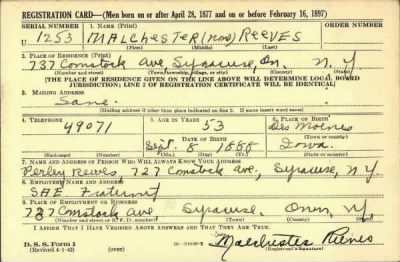 REGISTRATION CARD—(Men born on or after April 28, 1877 and on or before February 16, 1897)
SERIAL NUMBER 1. NAME (Print)
U 1253 MALCHESTER (NMN) REEVES
(First) (Middle) (Last)
2. PLACE OF RESIDENCE (Print)
737 Comstock Ave Syracuse, On. N. Y.
(Number and street) (Town, township, village, or city) (County) (State)
[THE PLACE OF RESIDENCE GIVEN ON THE LINE ABOVE WILL DETERMINE LOCAL BOARD
JURISDICTION; LINE 2 OF REGISTRATION CERTIFICATE WILL BE IDENTICAL]
3. MAILING ADDRESS
Same.
[Mailing address if other than place indicated on line 2. If same insert word same]
4. TELEPHONE 5. AGE IN YEARS 6. PLACE OF BIRTH
49071 53 Des Moines
DATE OF BIRTH (Town or county)
Sept. 8 1888 Iowa.
(Exchange) (Number) (Mo.) (Day) (Yr.) (State or country)
7. NAME AND ADDRESS OF PERSON WHO WILL ALWAYS KNOW YOUR ADDRESS
Perley Reeves, 727 Comstock Ave., Syracuse, N. Y.
8. EMPLOYER'S NAME AND ADDRESS
SAE Fraternity
9. PLACE OF EMPLOYMENT OR BUSINESS
737 Comstock Ave Syracuse. Onon, N.Y.
(Number and street or R. F. D. number) (Town) (County) (State)
I AFFIRM THAT I HAVE VERIFIED ABOVE ANSWERS AND THAT THEY ARE TRUE.
D. S. S. Form 1
(Revised 4-1-42) (over) Malchester Reeves
(Registrant's signature)